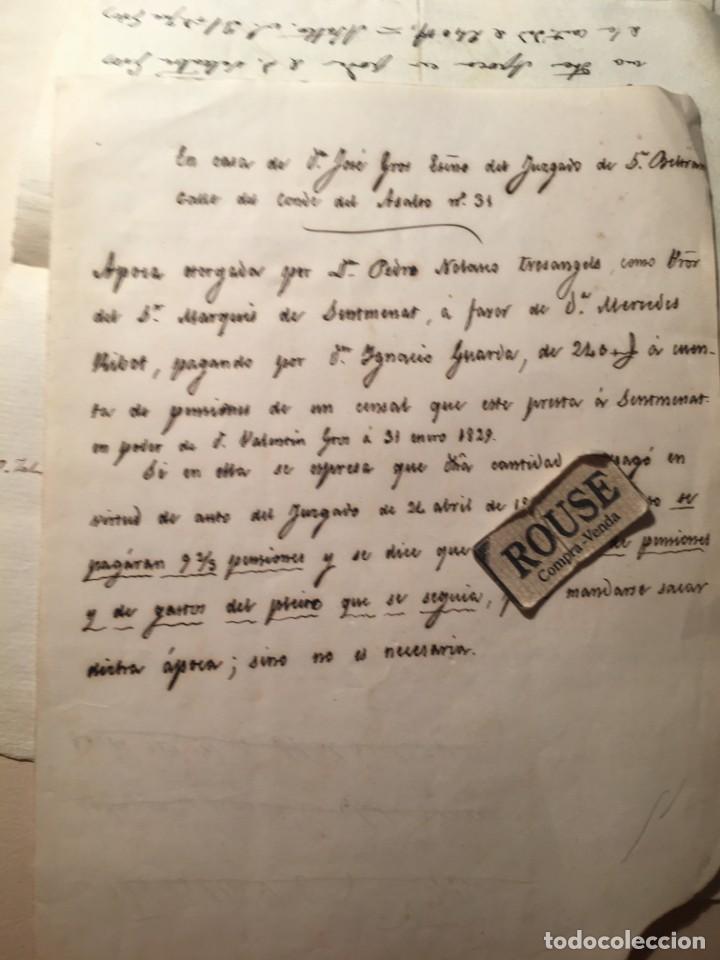 En casa de Dn. José Gros Esño del Juzgado de Dn. Beltran
Calle del Conde del Asalto nº. 31
Apoca otorgada por Dn. Pedro Nolasco Tresangels, como Pròr
del Sr. Marqués de Sentmenat, á favor de Da. Mercedes
Ribot, pagando por Dn. Ignacio Guarda, de 240 á cuen-
ta de pensiones de un censal que este presta á Sentmenat
en poder de D. Valentin Gros á 31 enero 1829.
Si en ella se espresa que dha cantidad pagó en
virtud de auto del Juzgado de 24 abril de 18 se
pagáran 9 2/3 pensiones y se dice que de pensiones
y de gastos del pleito que se seguia, mandarse sacar
dicha ápoca; sino no es necesaria.
ROUSE
Compra-Venda
todocoleccion
todocoleccion.net